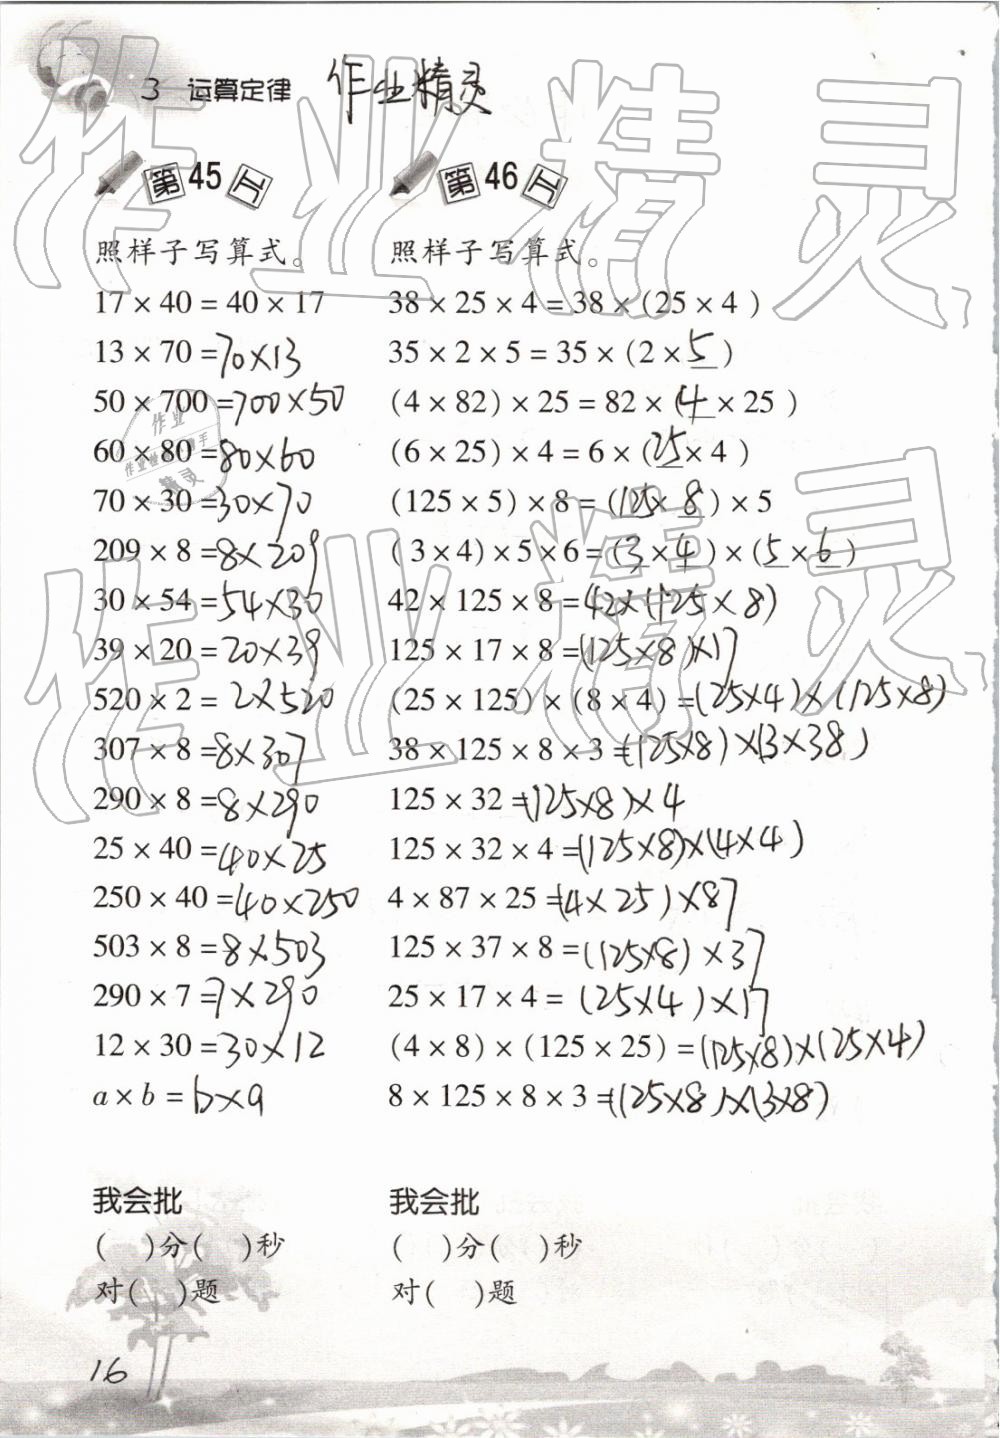 3 运算定律 作业精灵
第45工
照样子写算式。
17×40=40×17
13×70=70×13
50×700=700×50
60×80=80×60
70×30=30×70
209×8=8×209
30×54=54×30
39×20=20×39
520×2=2×520
307×8=8×307
290×8=8×290
25×40=40×25
250×40=40×250
503×8=8×503
290×7=7×290
12×30=30×12
a×b=b×a
我会批
( )分( )秒
对( )题
第46工
照样子写算式。
38×25×4=38×(25×4)
35×2×5=35×(2×5)
(4×82)×25=82×(4×25)
(6×25)×4=6×(25×4)
(125×5)×8=(125×8)×5
(3×4)×5×6=(3×4)×(5×6)
42×125×8=42×(125×8)
125×17×8=(125×8)×17
(25×125)×(8×4)=(25×4)×(125×8)
38×125×8×3=(125×8)×(3×38)
125×32=(125×8)×4
125×32×4=(125×8)×(4×4)
4×87×25=(4×25)×87
125×37×8=(125×8)×37
25×17×4=(25×4)×17
(4×8)×(125×25)=(125×8)×(25×4)
8×125×8×3=(125×8)×(3×8)
我会批
( )分( )秒
对( )题
16
作业精灵
作业精灵
作业
精灵